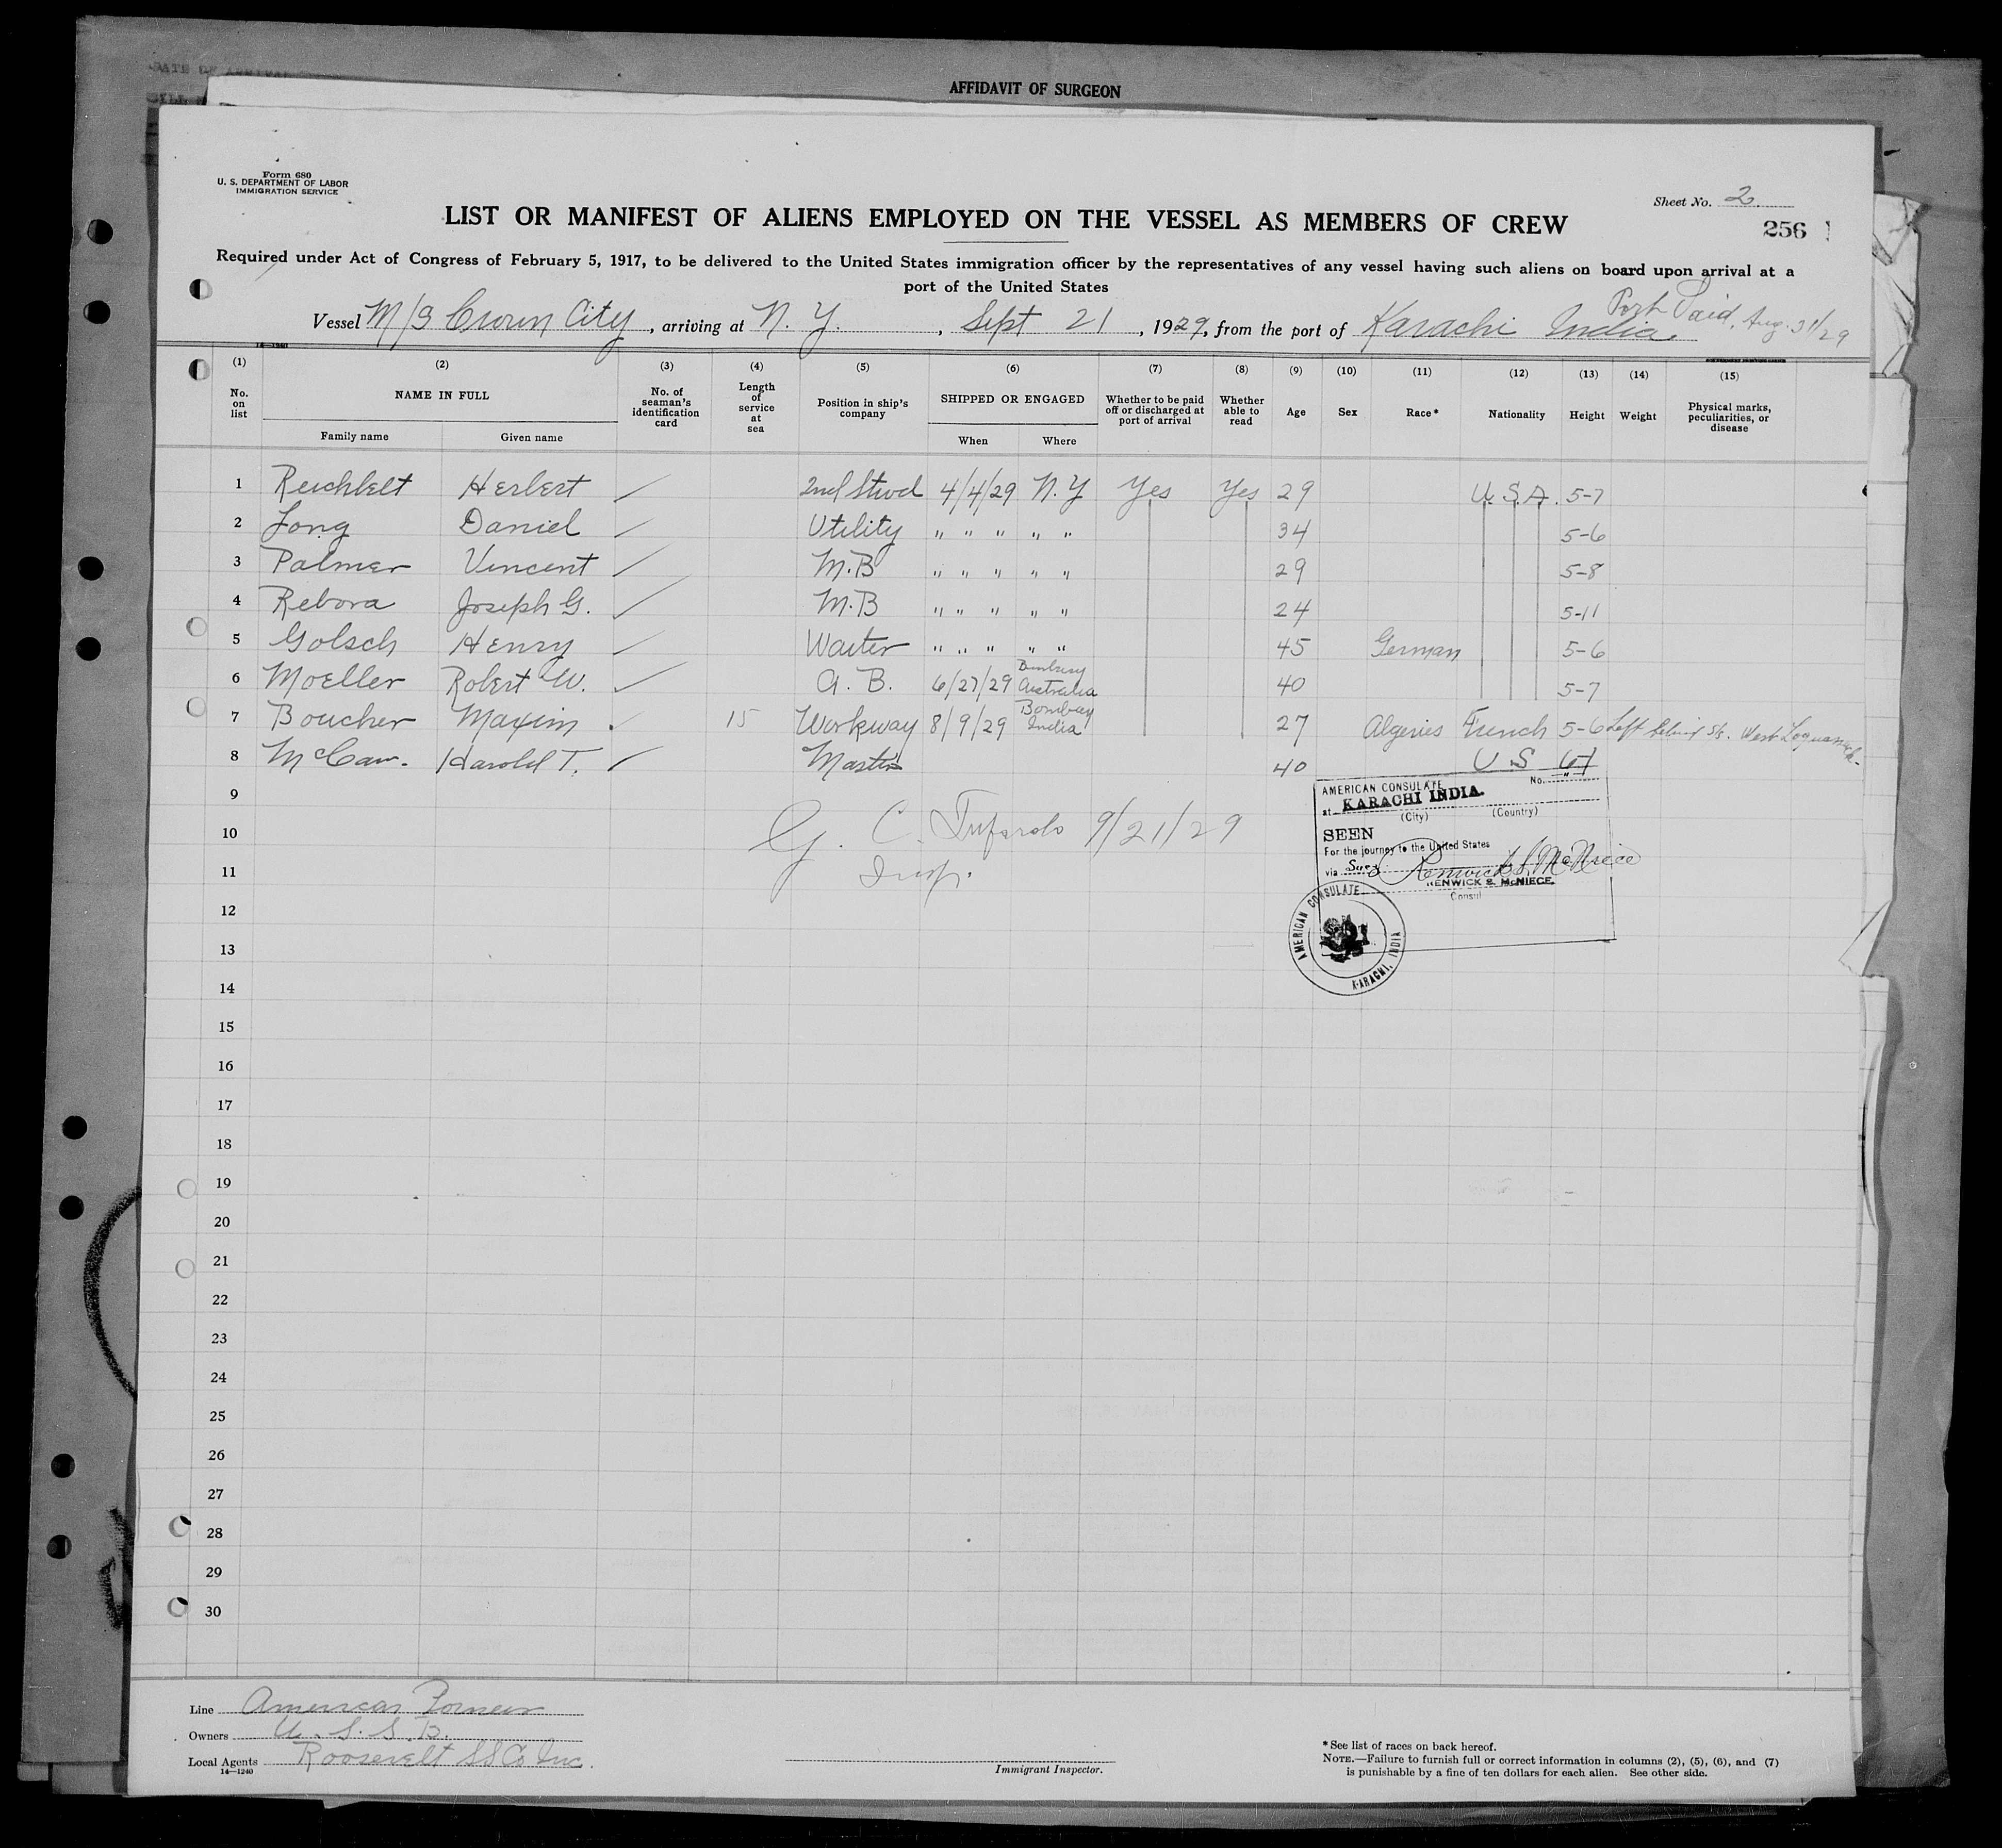 AFFIDAVIT OF SURGEON
Form 680
U. S. DEPARTMENT OF LABOR
IMMIGRATION SERVICE
Sheet No. 2
LIST OR MANIFEST OF ALIENS EMPLOYED ON THE VESSEL AS MEMBERS OF CREW
256
Required under Act of Congress of February 5, 1917, to be delivered to the United States immigration officer by the representatives of any vessel having such aliens on board upon arrival at a
port of the United States
Port Said, Aug. 31/29
Vessel M/S Crown City, arriving at N. Y., Sept 21, 1929, from the port of Karachi India.
(1) (2) (3) (4) (5) (6) (7) (8) (9) (10) (11) (12) (13) (14) (15)
No. on list NAME IN FULL No. of seaman's identification card Length of service at sea Position in ship's company SHIPPED OR ENGAGED Whether to be paid off or discharged at port of arrival Whether able to read Age Sex Race* Nationality Height Weight Physical marks, peculiarities, or disease
Family name Given name When Where
1 Reichbelt Herbert 2nd Stwd 4/4/29 N.Y Yes Yes 29 U.S.A. 5-7
2 Long Daniel Utility " " " " " 34 5-6
3 Palmer Vincent M.B " " " " " 29 5-8
4 Rebora Joseph G. M.B " " " " " 24 5-11
5 Golsch Henry Waiter " " " " " 45 German 5-6
6 Moeller Robert W. A. B. 6/27/29 Bunbury Australia 40 5-7
7 Boucher Maxim 15 Workway 8/9/29 Bombay India 27 Algeries French 5-6 Left behind SS. West
8 McCaw. Harold T. Master 40 U S
9
10
11
12
13
14
15
16
17
18
19
20
21
22
23
24
25
26
27
28
29
30
G. C. 9/21/29
Insp.
AMERICAN CONSULATE No.
at KARACHI INDIA.
(City) (Country)
SEEN
For the journey to the United States
via Suez Renwick S. McNiece
RENWICK S. McNIECE.
Consul
AMERICAN CONSULATE
KARACHI, INDIA
Line American Pioneer
Owners U. S. S. B.
Local Agents Roosevelt SS Co Inc.
14—1240
Immigrant Inspector.
* See list of races on back hereof.
NOTE.—Failure to furnish full or correct information in columns (2), (5), (6), and (7)
is punishable by a fine of ten dollars for each alien. See other side.